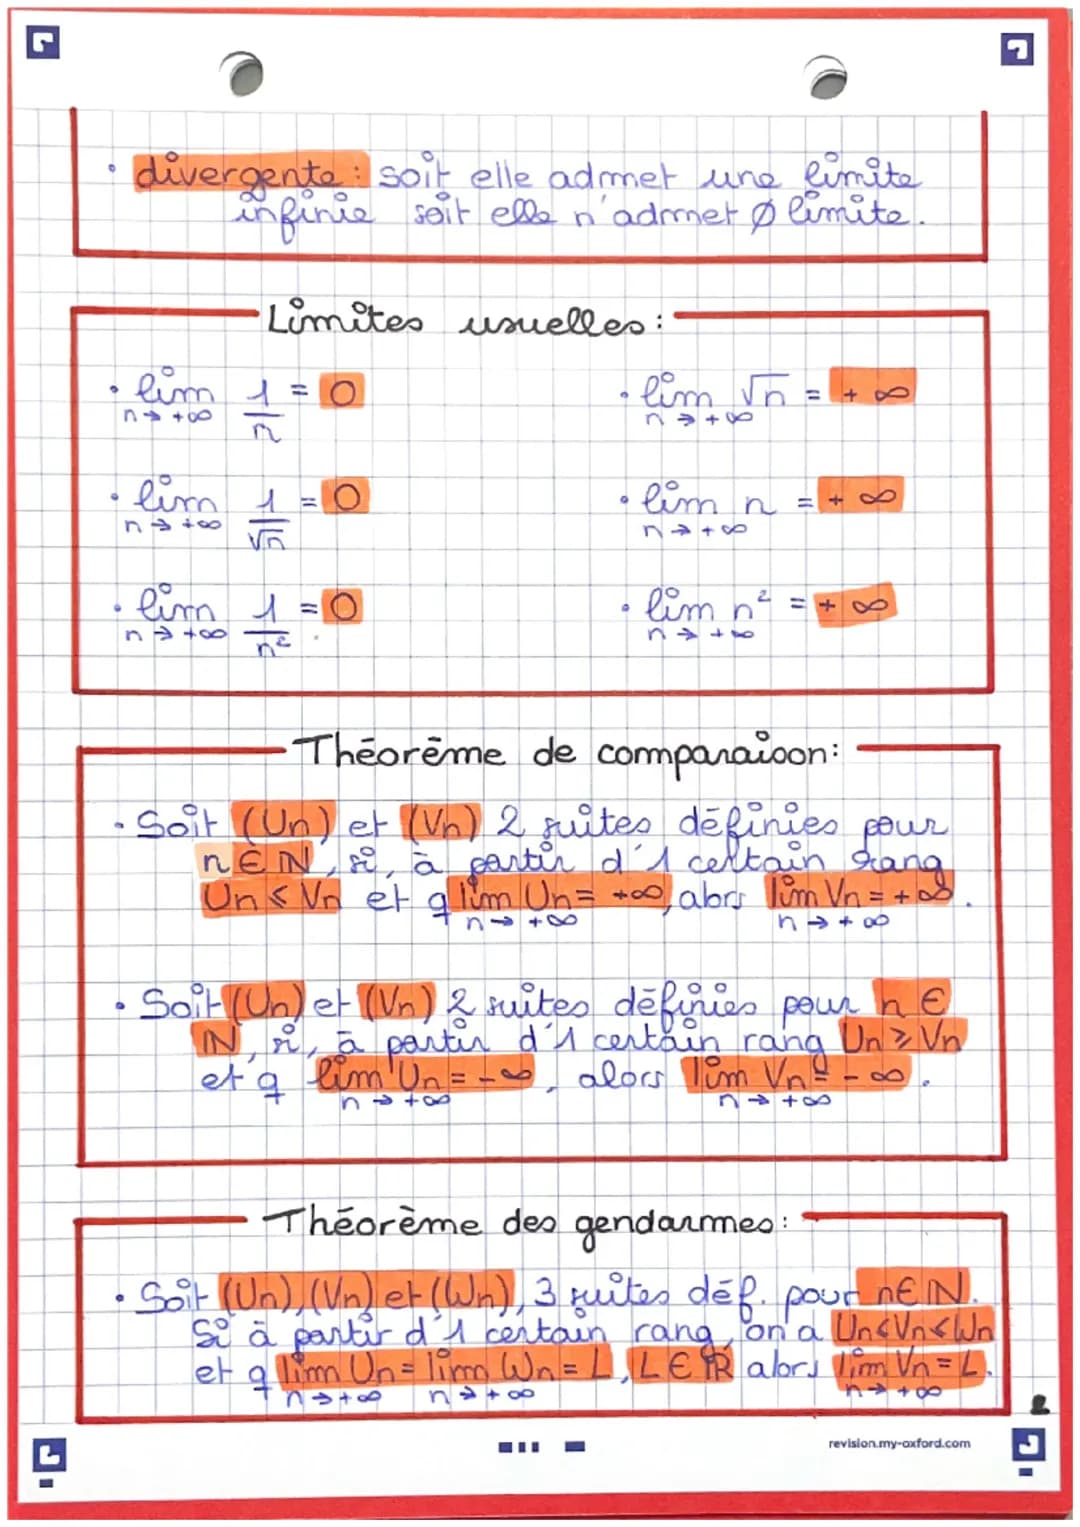 • divergente : soit elle admet une limite
infinie soit elle n'admet Ø limite.
Limites usuelles :
• lim 1/n = 0
n → +∞
• lim √n = + ∞
n → +∞
• lim 1/√n = 0
n → +∞
• lim n = + ∞
n → +∞
• lim 1/n² = 0
n → +∞
• lim n² = + ∞
n → +∞
Théorème de comparaison :
• Soit (Un) et (Vn) 2 suites définies pour
n ∈ ℕ, si, à partir d'1 certain rang
Un ≤ Vn et q lim Un = +∞, alors lim Vn = + ∞.
n → +∞ n → +∞
• Soit (Un) et (Vn) 2 suites définies pour n ∈
ℕ, si, à partir d'1 certain rang Un ≥ Vn
et q lim Un = -∞, alors lim Vn = - ∞.
n → +∞ n → +∞
Théorème des gendarmes :
• Soit (Un), (Vn) et (Wn), 3 suites déf. pour n ∈ ℕ.
Si à partir d'1 certain rang, on a Un<Vn<Wn
et q lim Un = lim Wn = L, L ∈ ℝ alors lim Vn = L.
n → +∞ n → +∞ n → +∞
2
revision.my-oxford.com